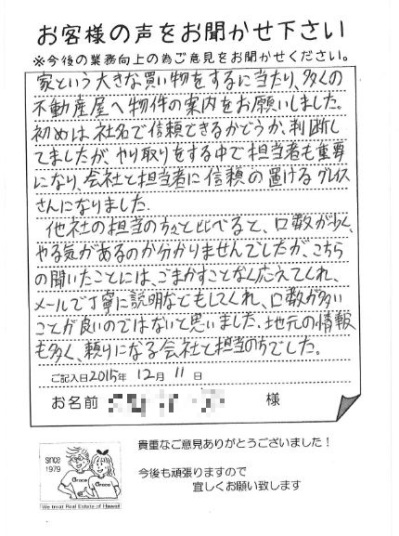 お客様の声をお聞かせ下さい
※今後の業務向上の為ご意見をお聞かせください。
家という大きな買い物をするに当たり、多くの
不動産屋へ物件の案内をお願いしました。
初めは、社名で信頼できるかどうか、判断し
てましたが、やり取りをする中で担当者も重要
になり、会社と担当者に信頼の置けるグレイス
さんになりました。
他社の担当の方々と比べると、口数が少く、
やる気があるのか分かりませんでしたが、こちら
の聞いたことには、ごまかすことなく応えてくれ、
メールで丁寧に説明などもしてくれ、口数が多い
ことが良いのではないと思いました。地元の情報
も多く、頼りになる会社と担当の方でした。
ご記入日2015年 12月 11日
お名前 様
貴重なご意見ありがとうございました！
since
1979
今後も頑張りますので
宜しくお願い致します
Grace
Grace
We treat Real Estate of Hawaii